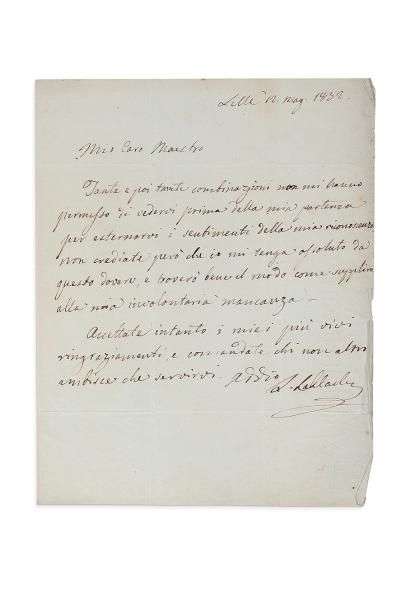 Lille 12 mag. 1832.
Mio Caro Maestro
Tante e poi tante combinazioni non mi hanno
permesso di vedervi prima della mia partenza
per esternarvi i sentimenti della mia riconoscenza
non crediate però che io mi tenga assoluto da
questo dovere, e troverò bene il modo come supplire
alla mia involontaria mancanza –
Accettate intanto i miei più vivi
ringraziamenti, e comandate chi non altro
ambisce che servirvi. Addio
L. Lablache